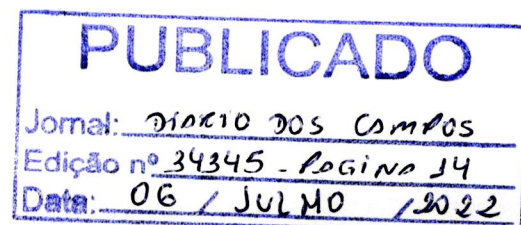 PUBLICADO
Jornal: DIARIO DOS CAMPOS
Edição nº 34345 - PAGINA 14
Data: 06 / JULHO / 2022